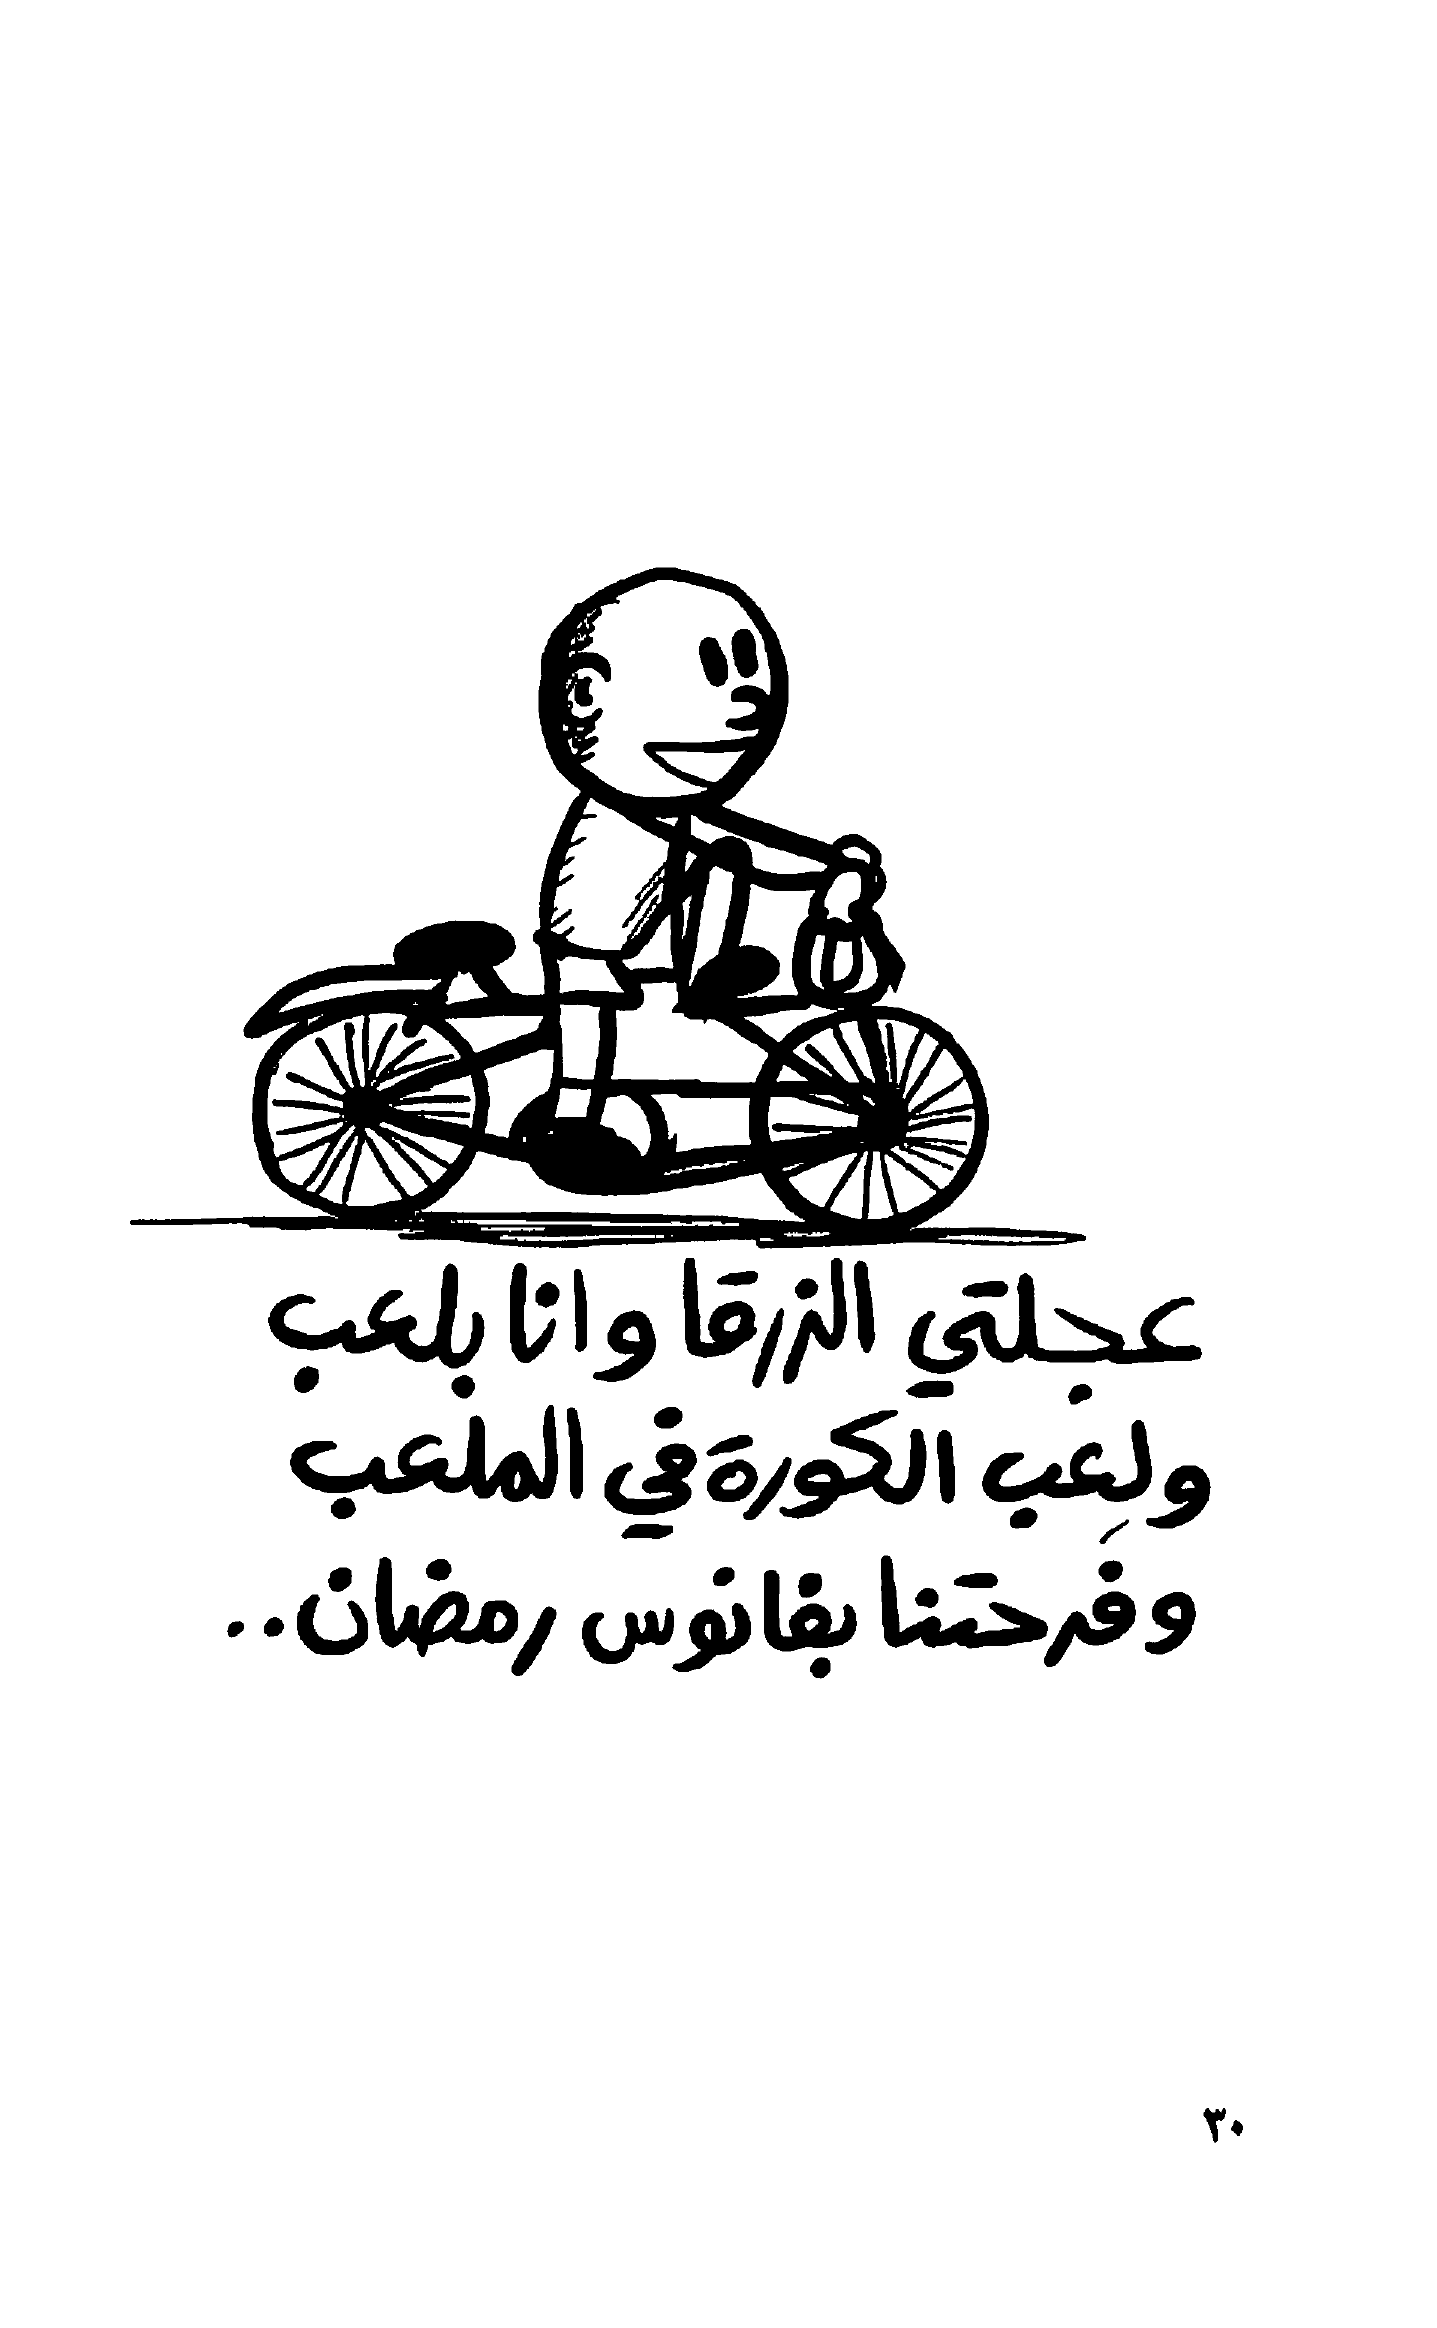 عجلتي الزرقا وانا بلعب
ولعب الكورة في الملعب
وفرحتنا بفانوس رمضان..
٣٠